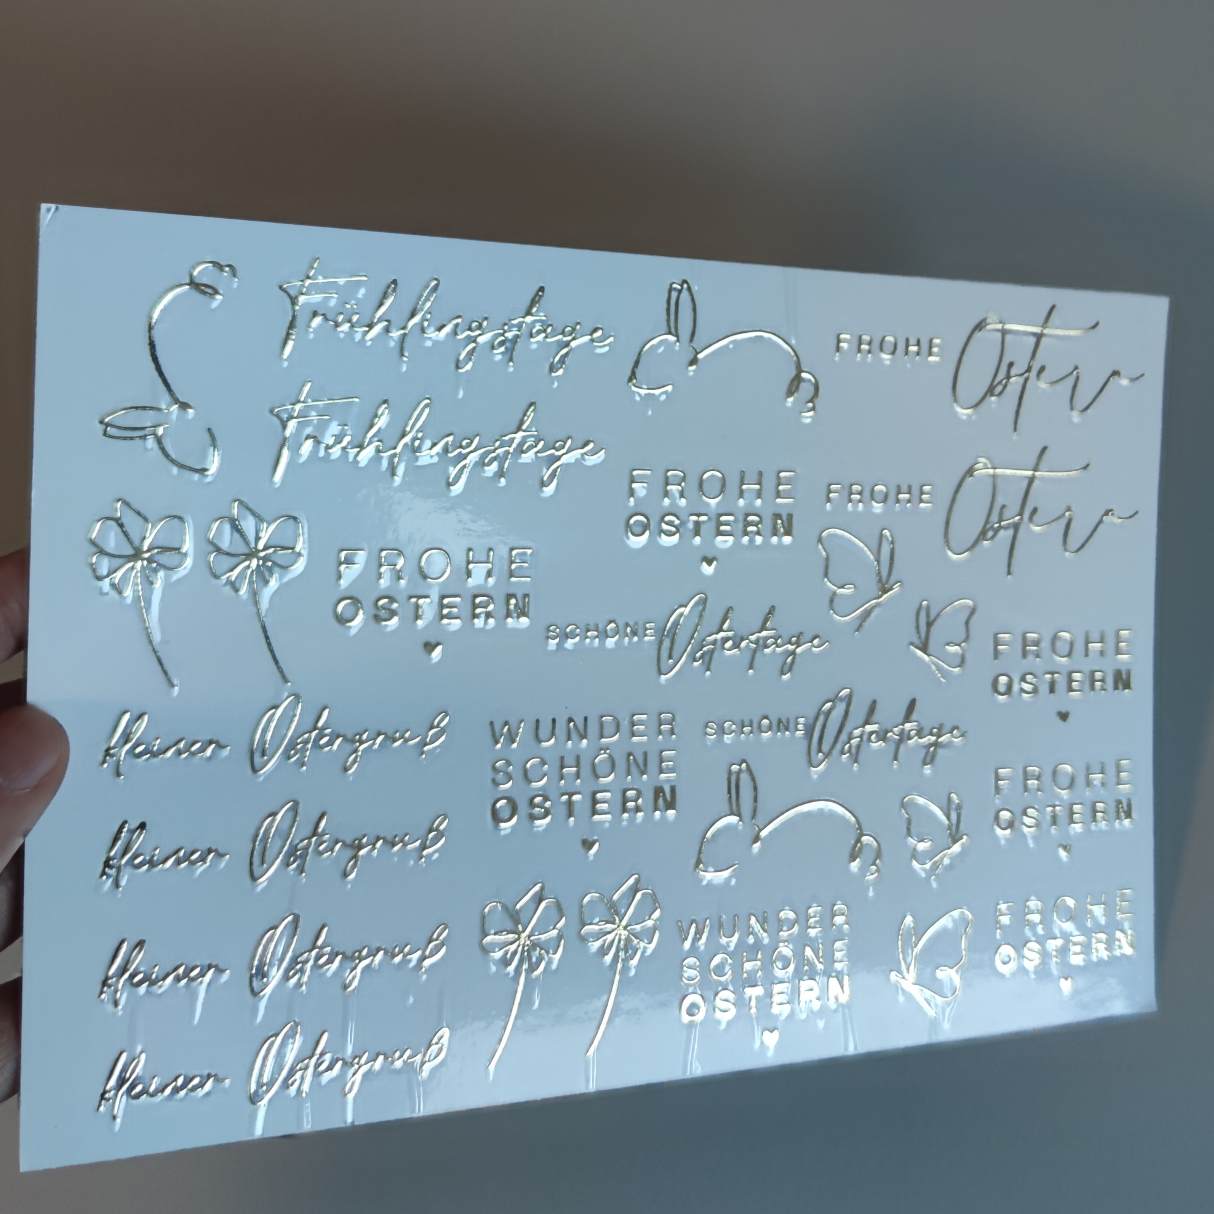 Frühlingstage
Frühlingstage
FROHE Ostern
FROHE Ostern
FROHE
OSTERN
FROHE
OSTERN
SCHÖNE Ostertage
FROHE
OSTERN
kleiner Ostergruß
WUNDER
SCHÖNE
OSTERN
SCHÖNE Ostertage
FROHE
OSTERN
kleiner Ostergruß
kleiner Ostergruß
WUNDER
SCHÖNE
OSTERN
FROHE
OSTERN
kleiner Ostergruß